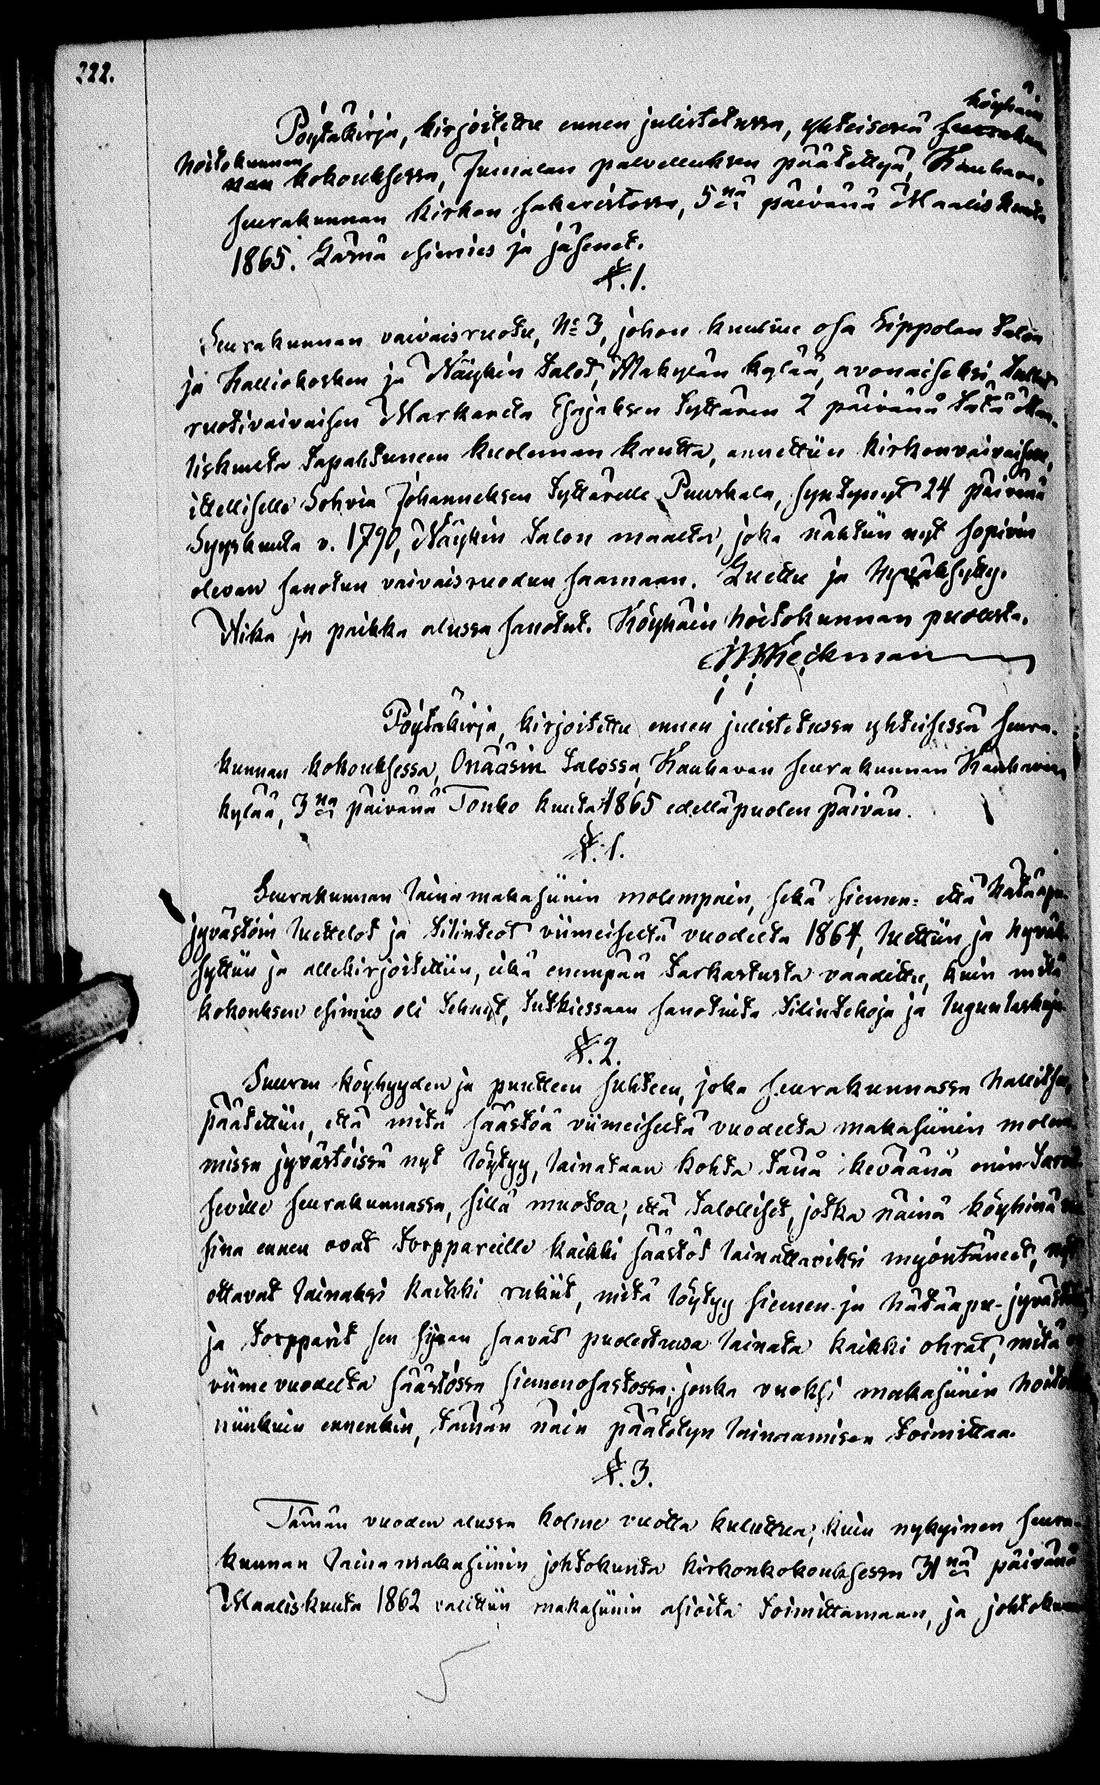 222.
Pöytäkirja, kirjoitettu ennen julistetussa, yhteisessä köyhäin
hoitokunnan kokouksessa, Jumalan palvelluksen päätettyä, Kauhavan
seurakunnan kirkon sakaristossa, 5nä päivänä Maaliskuuta
1865. Läsnä esimies ja jäsenet.
§. 1.
Seurakunnan vaivaisruotu, No 3, johon kuuluu osa Sippolan talon
ja Kalliokosken ja Näykin talot, Mäkylän kylää, avonaiseksi tullut
ruotivaivaisen Markareta Esajaksen tyttären 2 päivänä tätä Maa-
liskuuta tapahtuneen kuoleman kautta, annettiin kirkonvaivaisen,
itselliselle Sohvia Johanneksen tyttärelle Puuskala, syntynyt 24 päivänä
Syyskuuta v. 1790, Näykin talon maalta, joka nähtiin nyt sopivin
olevan sanotun vaivaisruodun saamaan. Luettu ja hyväksytty.
Aika ja paikka alussa sanotut. Köyhäin hoitokunnan puolesta.
Heickman
Pöytäkirja, kirjoitettu ennen julistetussa yhteisessä seura-
kunnan kokouksessa, Onääsin talossa, Kauhavan seurakunnan Kauhavan
kylää, 3na päivänä Touko kuuta 1865 edelläpuolen päivän.
§. 1.
Seurakunnan lainamakasiinin molempain, sekä siemen- että hätäapu-
jyvästöin luettelot ja tilinteot viimeiseltä vuodelta 1864, luettiin ja hyväk-
syttiin ja allekirjoitettiin, eikä enempää tarkastusta vaadittu, kuin mitä
kokouksen esimies oli tehnyt, tutkiessaan sanotuita tilintekoja ja luguntaskuja.
§. 2.
Suuren köyhyyden ja puutteen suhteen, joka seurakunnassa hallitsee,
päätettiin, että mitä säästöä viimeiseltä vuodelta makasiinin molem-
missa jyvästöissä nyt löytyy, lainataan kohta tänä keväänä enin tarvit-
seville seurakunnassa, sillä muotoa, että talolliset, jotka näinä köyhinä vuo-
sina ennen ovat torppareille kaikki säästöt lainattaviksi myöntäneet, nyt
ottavat lainaksi kaikki rukiit, mitä löytyy siemen- ja hätäapu-jyvästössä
ja torpparit sen sijaan saavat puolestansa lainata kaikki ohrat, mitä on
viimevuodelta säästössä siemenosastossa; jonka vuoksi makasiinin hoitokunta
niinkuin ennenkin, tämän näin päätetyn lainaamisen toimittaa.
§. 3.
Tämän vuoden alussa kolme vuotta kuluttua, kuin nykyinen seura-
kunnan lainamakasiinin johtokunta kirkonkokouksessa 31nä päivänä
Maaliskuuta 1862 valittiin makasiinin asioita toimittamaan, ja johtokunnan